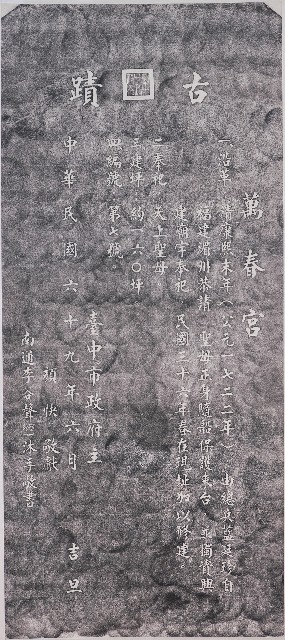 古蹟
萬春宮
一沿革 清康熙末年(公元一七二二年)由總兵藍廷珍自
福建湄州恭請 聖母正身隨船保護來台 並獨資興
建廟宇奉祀 民國三十六年春在現址加以修建。
二奉祀 天上聖母。
三建坪 約一六〇坪
四編號 第七號。
臺中市政府立
中華民國六十九年六月 吉旦
頌快 敬獻
南通李 沐手敬書